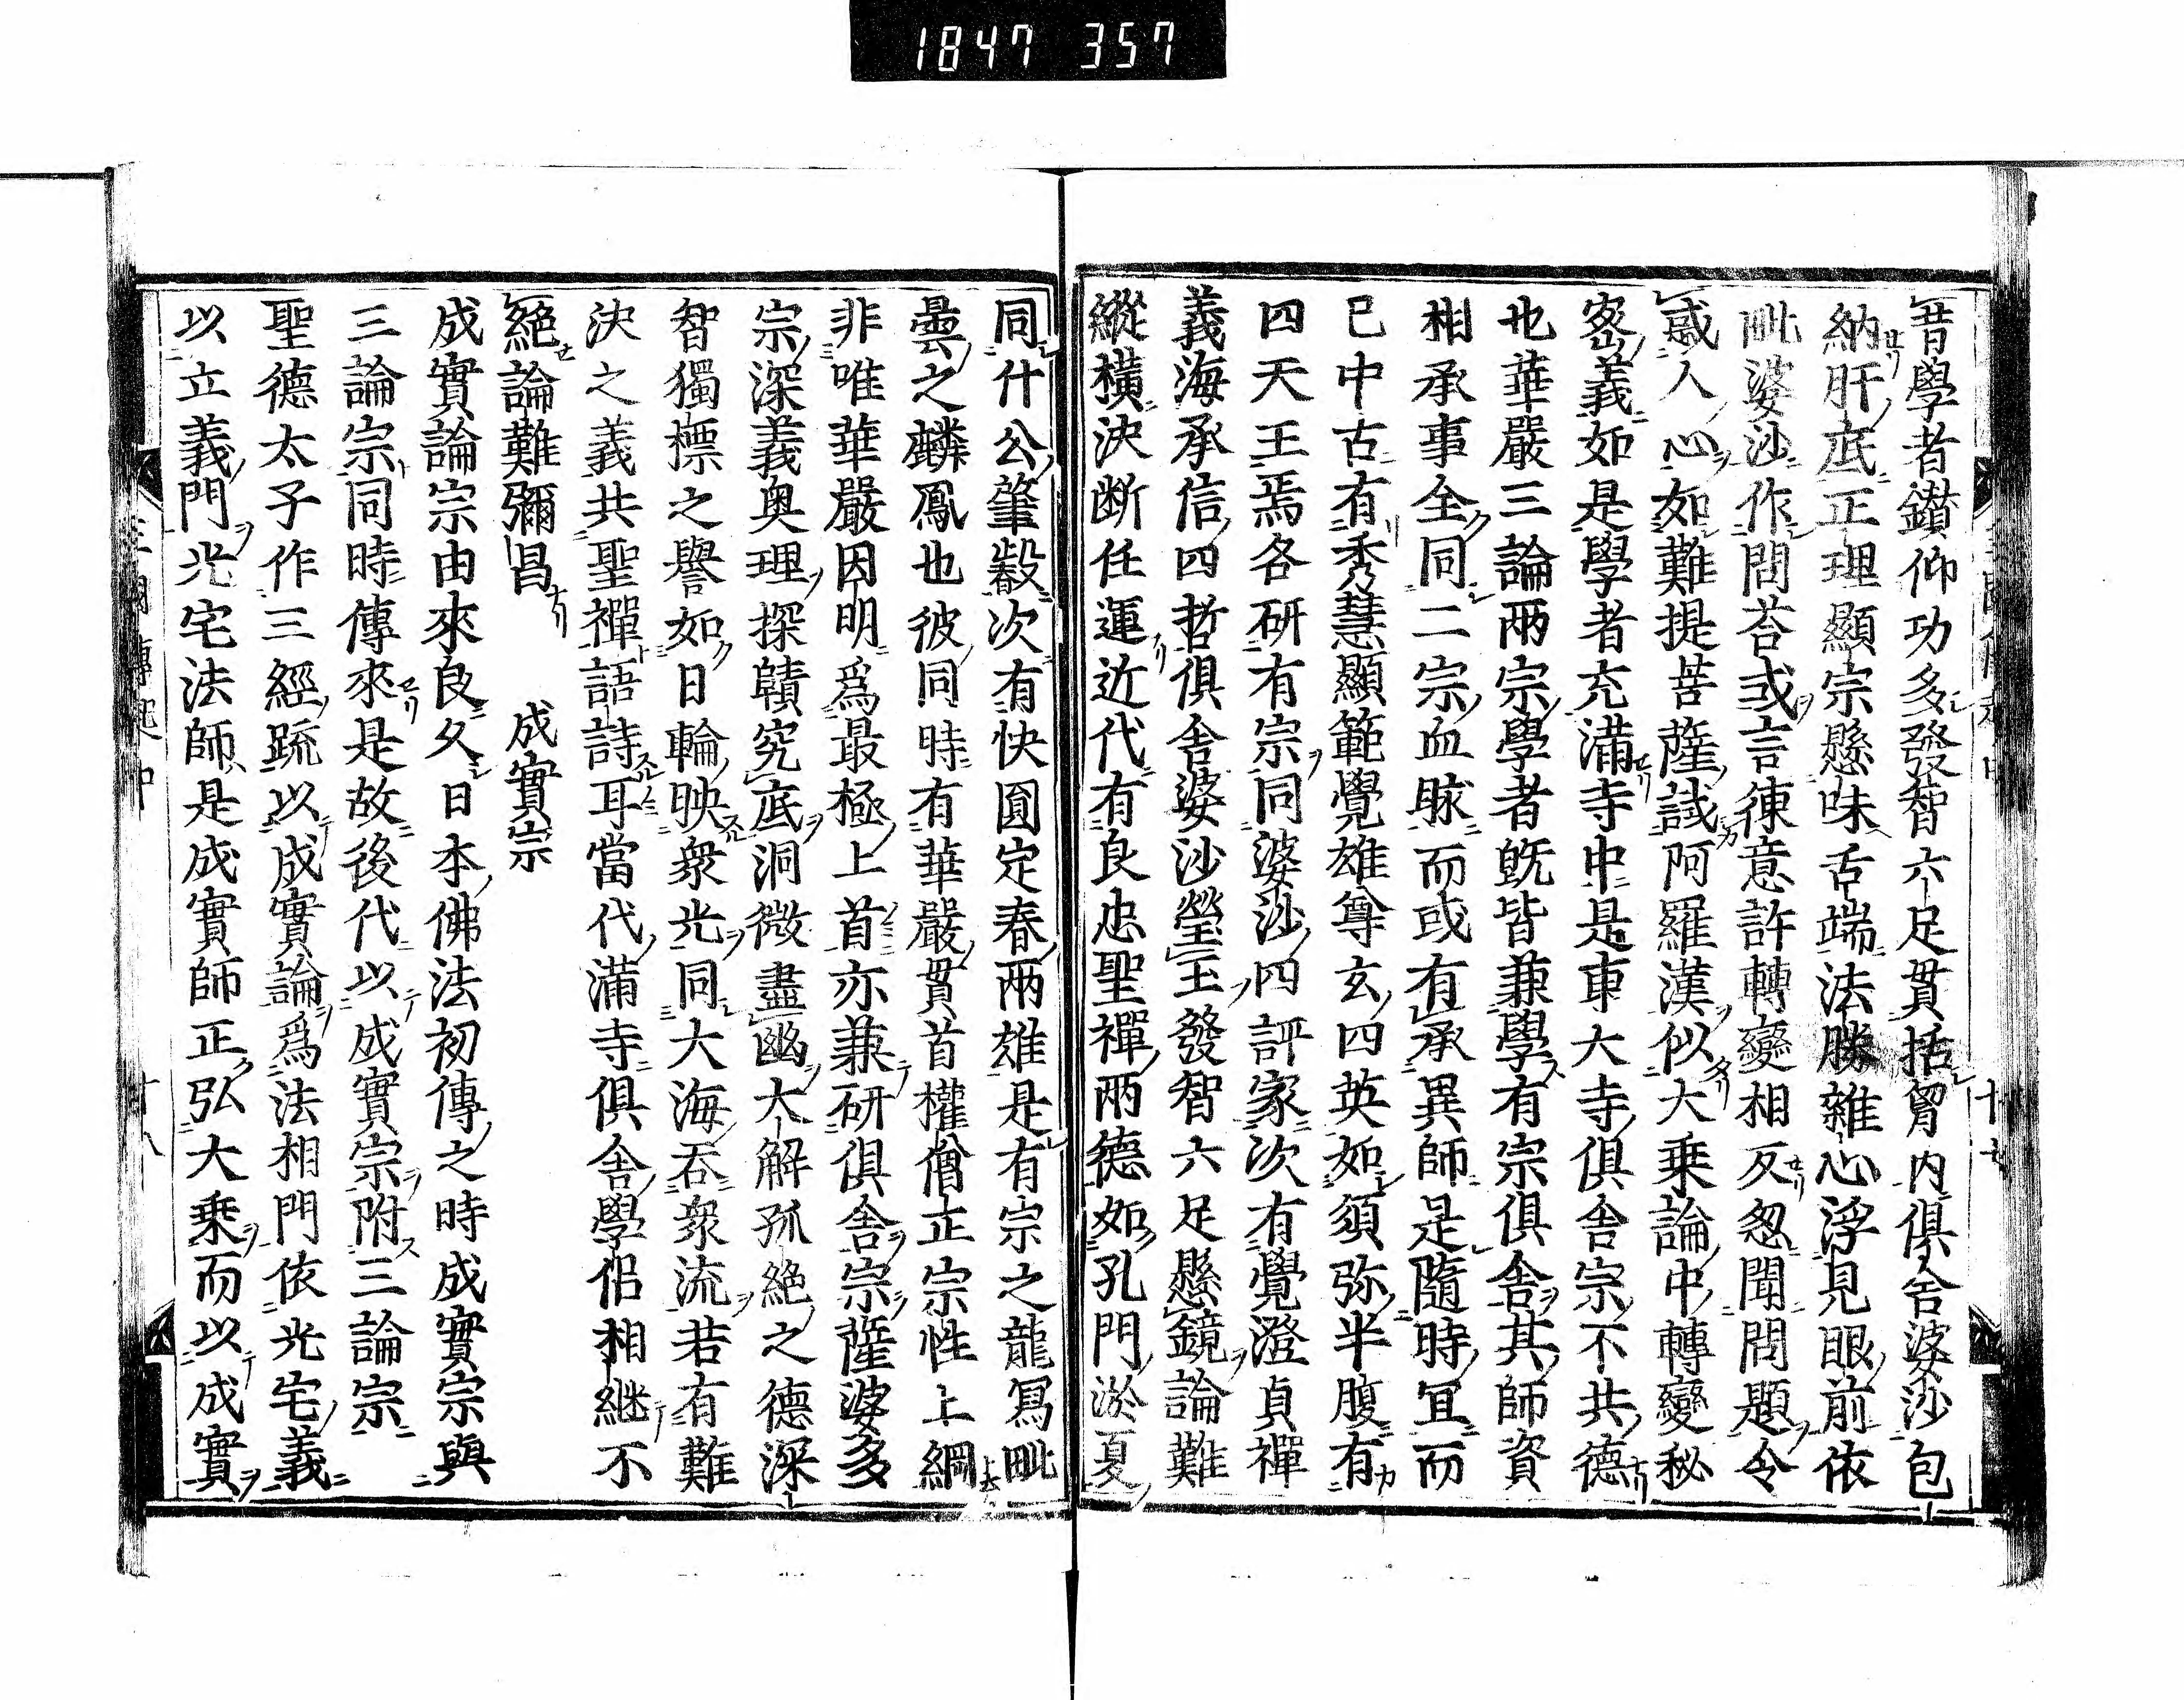 1847 357
昔學者鑚仰功多發智六足貫括胷内俱舍婆沙包
納肝底正理顯宗懸味舌端法勝雜心浮見眼前依
毗婆沙作問荅或言徤意許轉變相反忽聞問題令
感人心如難提菩薩試阿羅漢似大乗論中轉變秘
密義如是學者充滿寺中是東大寺俱舍宗不共德
也華嚴三論兩宗學者旣皆兼學有宗俱舍其師資
相承事全同二宗血脉而或有承異師是隨時冝而
已中古有秀慧顯範覺雄尊玄四英如須弥半腹有
四天王焉各研有宗同婆沙四評家次有覺澄貞禪
義海承信四哲俱舍婆沙瑩玉發智六足懸鏡論難
縱橫決断任運近代有良忠聖禪兩德如孔門淤夏
同什公肇叡次有快圓定春兩雄是有宗之龍冩毗
曇之麟鳳也彼同時有華嚴貫首權僧正宗性上綱
非唯華嚴因明爲最極上首亦兼研俱舍宗薩婆多
宗深義奥理探賾究底洞微盡幽大解孤絶之德深
智獨標之譽如日輪映衆光同大海吞衆流若有難
決之義共聖禪語詩耳當代滿寺俱舍學侶相継不
絶論難彌昌
成實宗
成實論宗由來良久日本佛法初傳之時成實宗與
三論宗同時傳來是故後代以成實宗附三論宗
聖德太子作三經疏以成實論爲法相門依光宅義
以立義門光宅法師是成實師正弘大乗而以成實
三國傳記中 十八